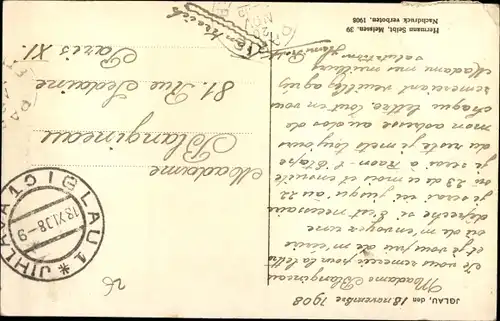 Hermann Seibt, Meissen. 39
Nachdruck verboten. 1908
IGLAU, den 18 novembre 1908
Madame Blangineau
Je vous remercie pour la lettre
et je vous prie de m'écrire
ou de m'envoyer une
dépêche si c'est nécessaire
je serai ici jusqu'au 22 au
ou 23 de ce mois et ensuite
je serai à Raon l'Etape
du reste je mets toujours
mon adresse au dos de
chaque lettre, tout en vous
remerciant veuillez agréer
Madame mes meilleures
salutations
Autriche
Madame
Blangineau
81. Rue Sedaine
Paris XI.
IGLAU 1 * JIHLAVA 1
18.XI.08-9
26